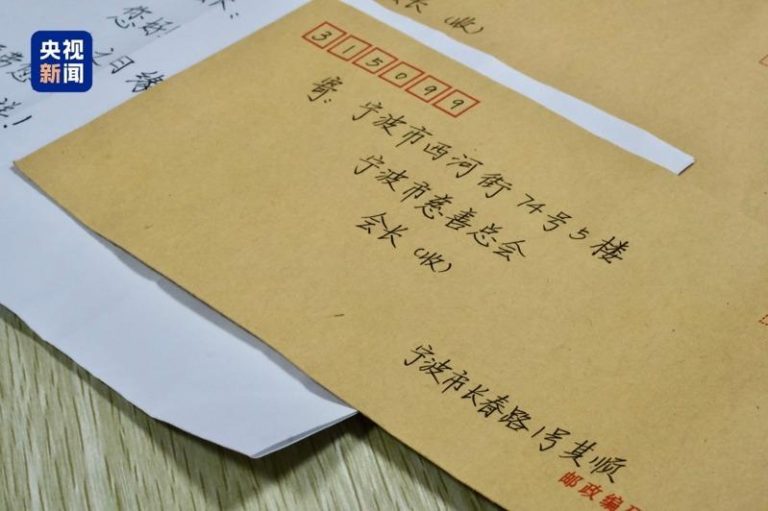 央视
新闻
您好
会长(收)
315099
寄:宁波市西河街74号5楼
宁波市慈善总会
会长(收)
宁波市长春路1号其顺
邮政编